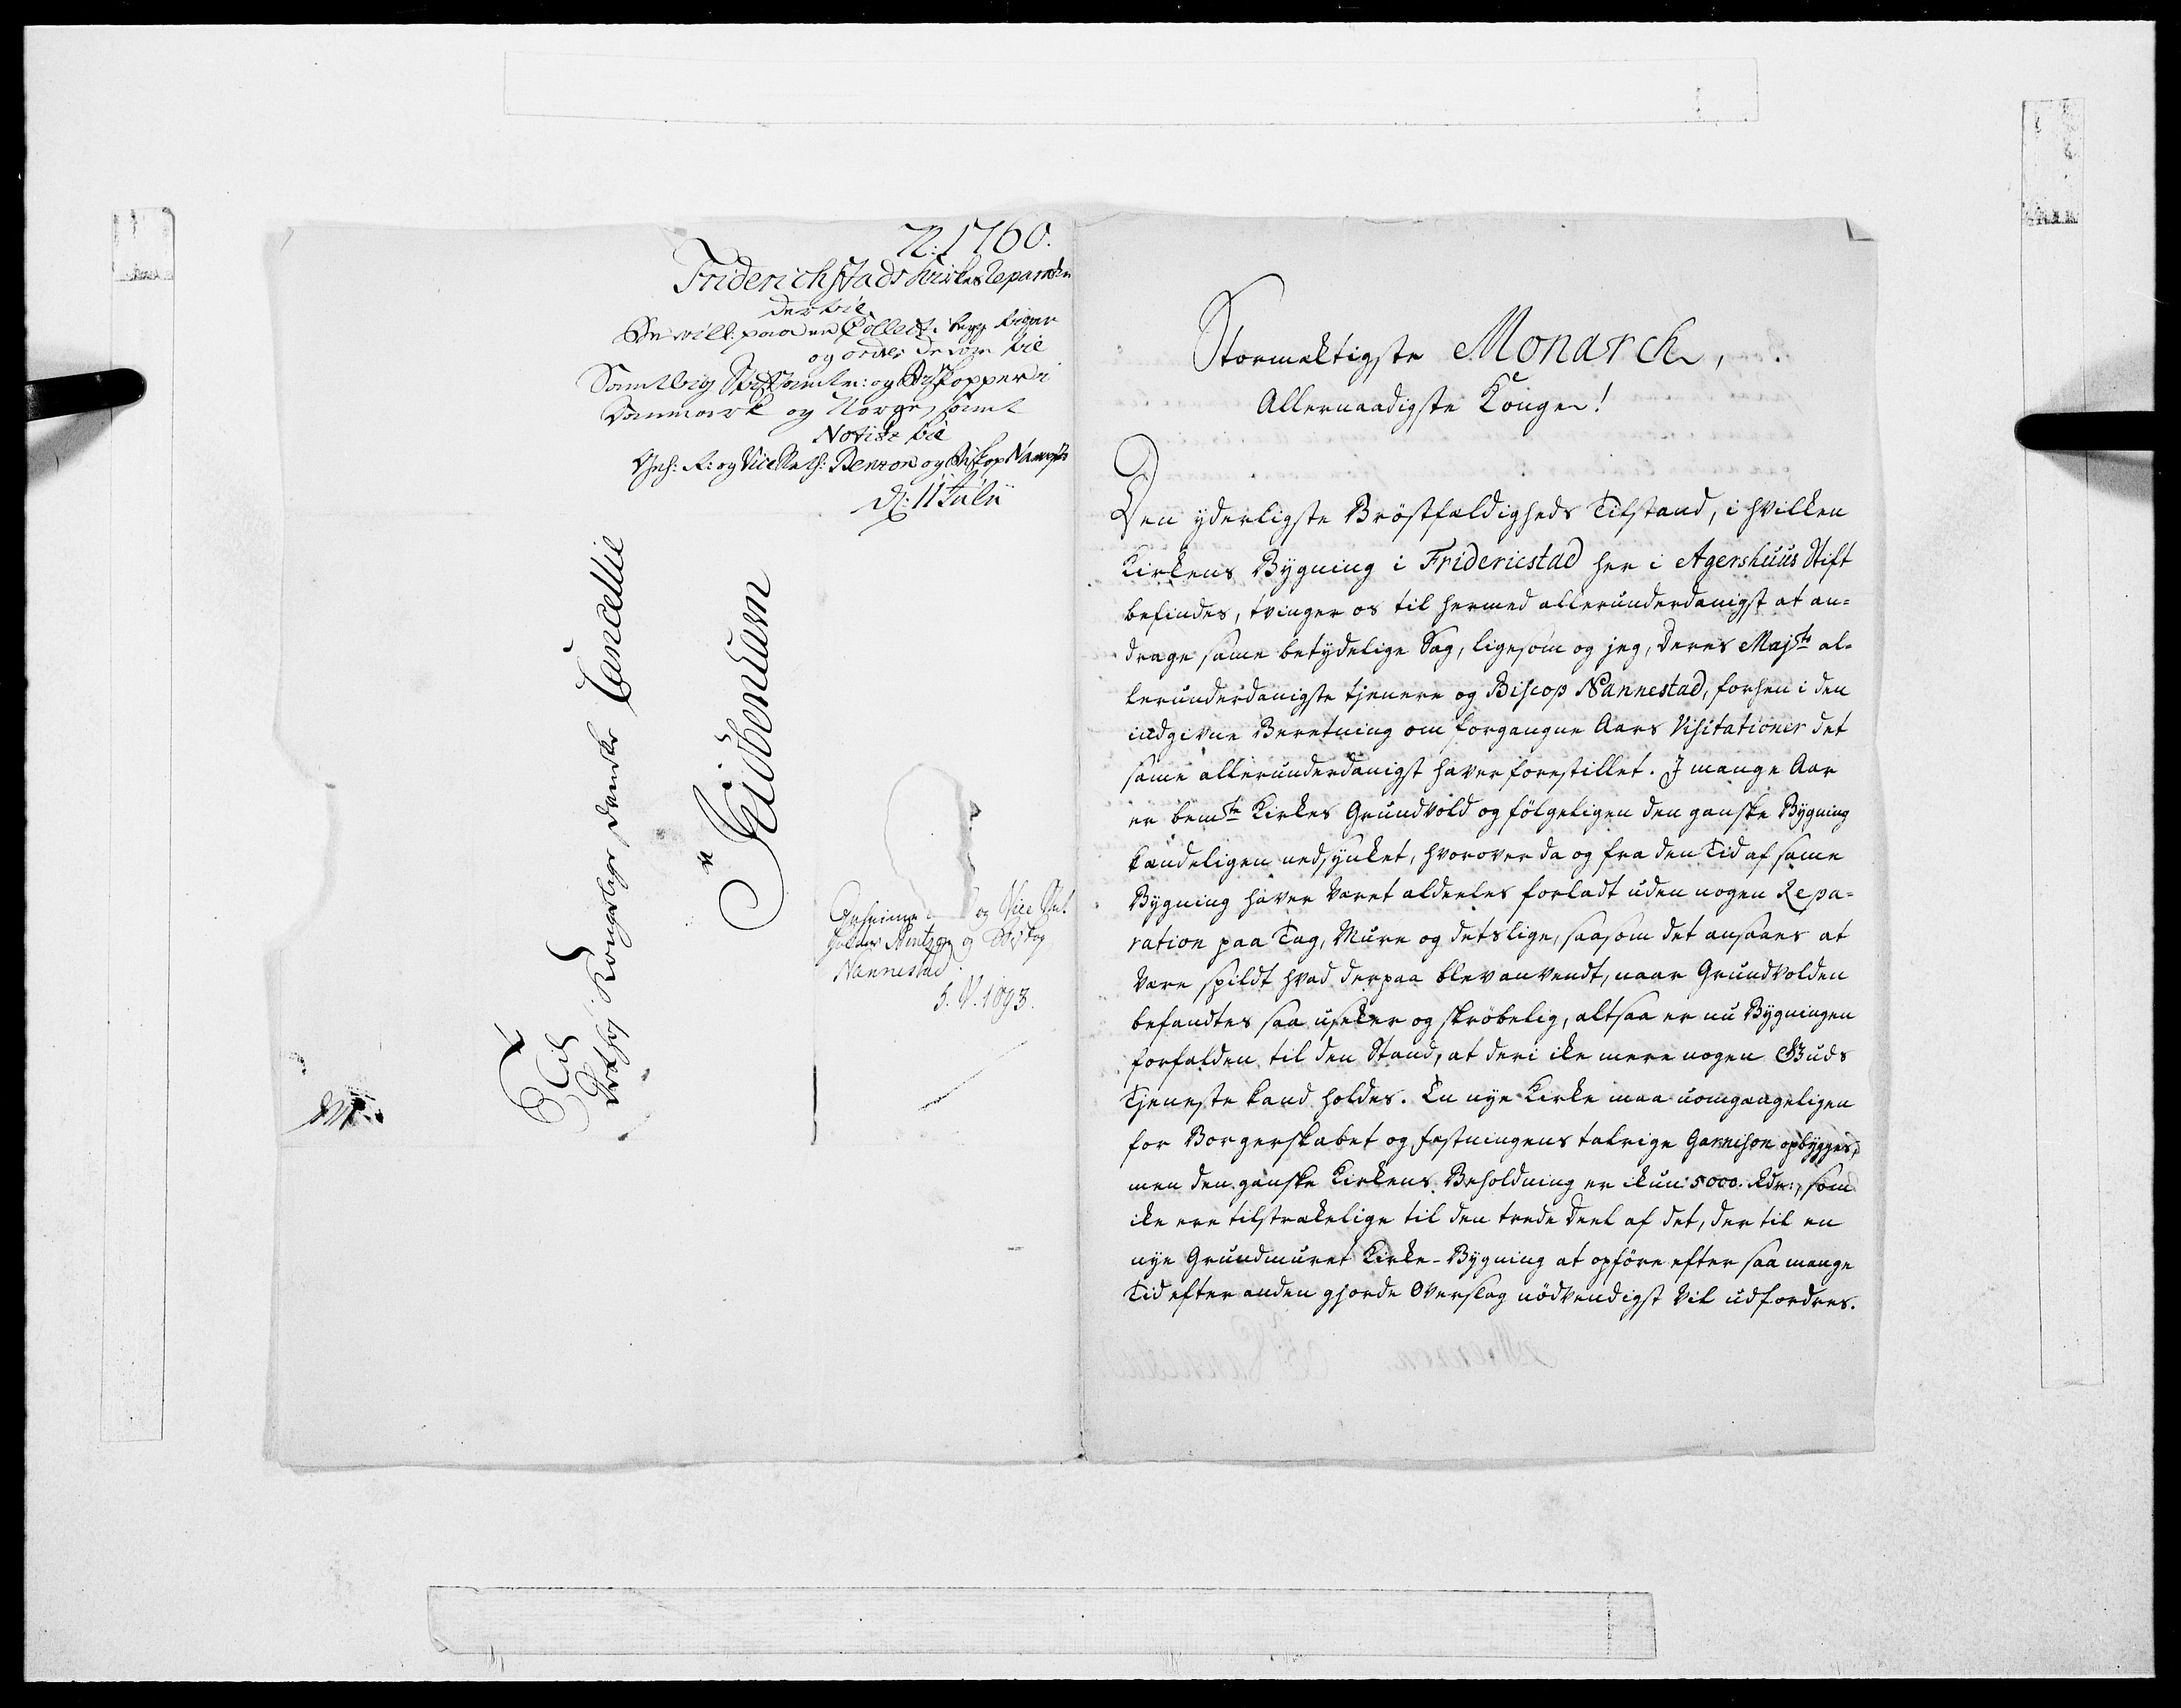 N: 1760.
Friderichstads Kirkes Reparation
Bevill: paa en Collect i begge Riger
og ordre derom til
Samtlig Stiftamtm: og Biskopper i
Danmark og Norge, samt
Notice til
Geh: R: og Vice Stath: Benzon og Biskop Nannest:
d: 11 Julii
Geheime og Vice Stat-
holder Bentzon og Biskop
Nannestad.
S. N. 1093.
Til
Det høj Kongelige Danske Cancellie
Feidbendum
Stormæktigste Monarch,
Allernaadigste Konge!
Den yderligste Bröstfældigheds Tilstand, i hvilken
Kirkens Bygning i Fridericstad her i Agershuus Stift
befindes, tvinger os til hermed allerunderdanigst at an=
drage same betydelige Sag, ligesom og jeg, Deres Majts al=
lerunderdanigste tjenere og Biscop Nannestad, forhen i den
indgivne Beretning om forgangne Aars Visitationer det
same allerunderdanigst haver forestillet. I mange Aar
er bemte Kirkes Grundvold og fölgeligen den ganske Bygning
kiendeligen nedsynket, hvorover da og fra den Tid af same
Bygning haver været aldeeles forladt uden nogen Repa=
ration paa Tag, Mure og detslige, saasom det ansaaes at
være spildt hvad derpaa blev anvendt, naar Grundvolden
befandtes saa usiker og skröbelig, altsaa er nu Bygningen
forfalden til den Stand, at deri ike mere nogen Guds
Tjeneste kand holdes. En nye Kirke maa uomgaaeligen
for Borgerskabet og Fæstningens talrige Garnison opbygges,
men den ganske Kirkens Beholdning er ikun 5000. Rdr:, som
ike ere tilstrækelige til den trede Deel af det, der til en
nye Grundmuret Kirke-Bygning at opföre efter saa mange
Tid efter anden gjorde Overslag nödvendigst vil udfordres.